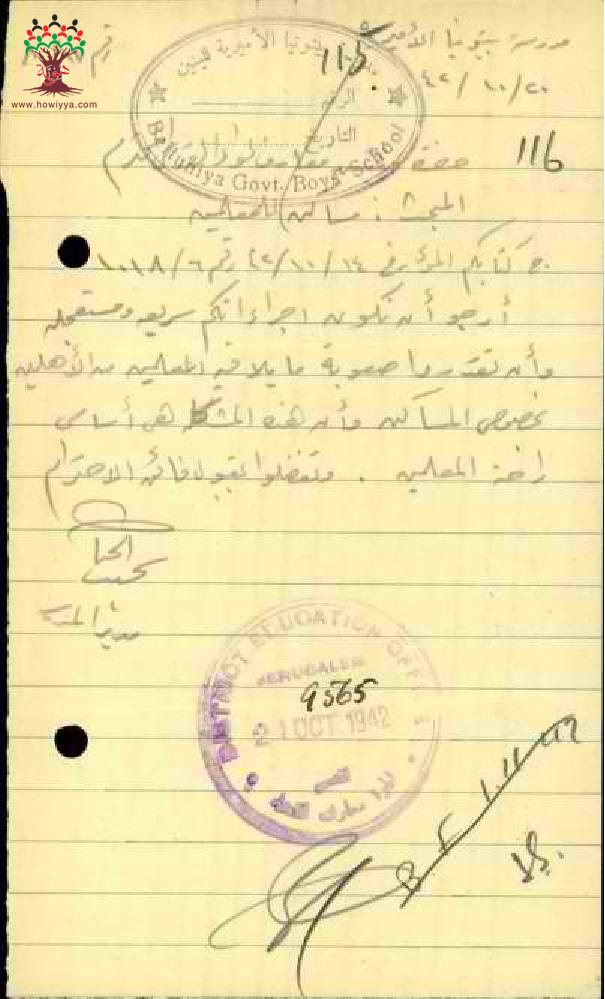 www.howiyya.com
مدرسة بيتونيا الأميرية
رقم
٤٢/١٠/٢٠
بيتونيا الأميرية للبنين
الرقم
التاريخ
Baituniya Govt. Boys' School
113
116
حضرة معارف لواء القدس المحترم
المبحث : مساكن للمعلمين
ج كتابكم المؤرخ ٤٢/١٠/١٤ رقم ١٠١٨/٦
أرجو أن تكون اجراءاتكم سريعه ومستعجله
وأن تقدروا صعوبة ما يلاقيه المعلمين من الأهلين
بخصوص المساكن وأن هذه المشكلة هي أساس
راحة المعلمين . وتفضلوا بقبول فائق الاحترام
مدير المدرسة
DISTRICT EDUCATION OFFICE
JERUSALEM
9565
21 OCT 1942
القدس
B F 1.11.42